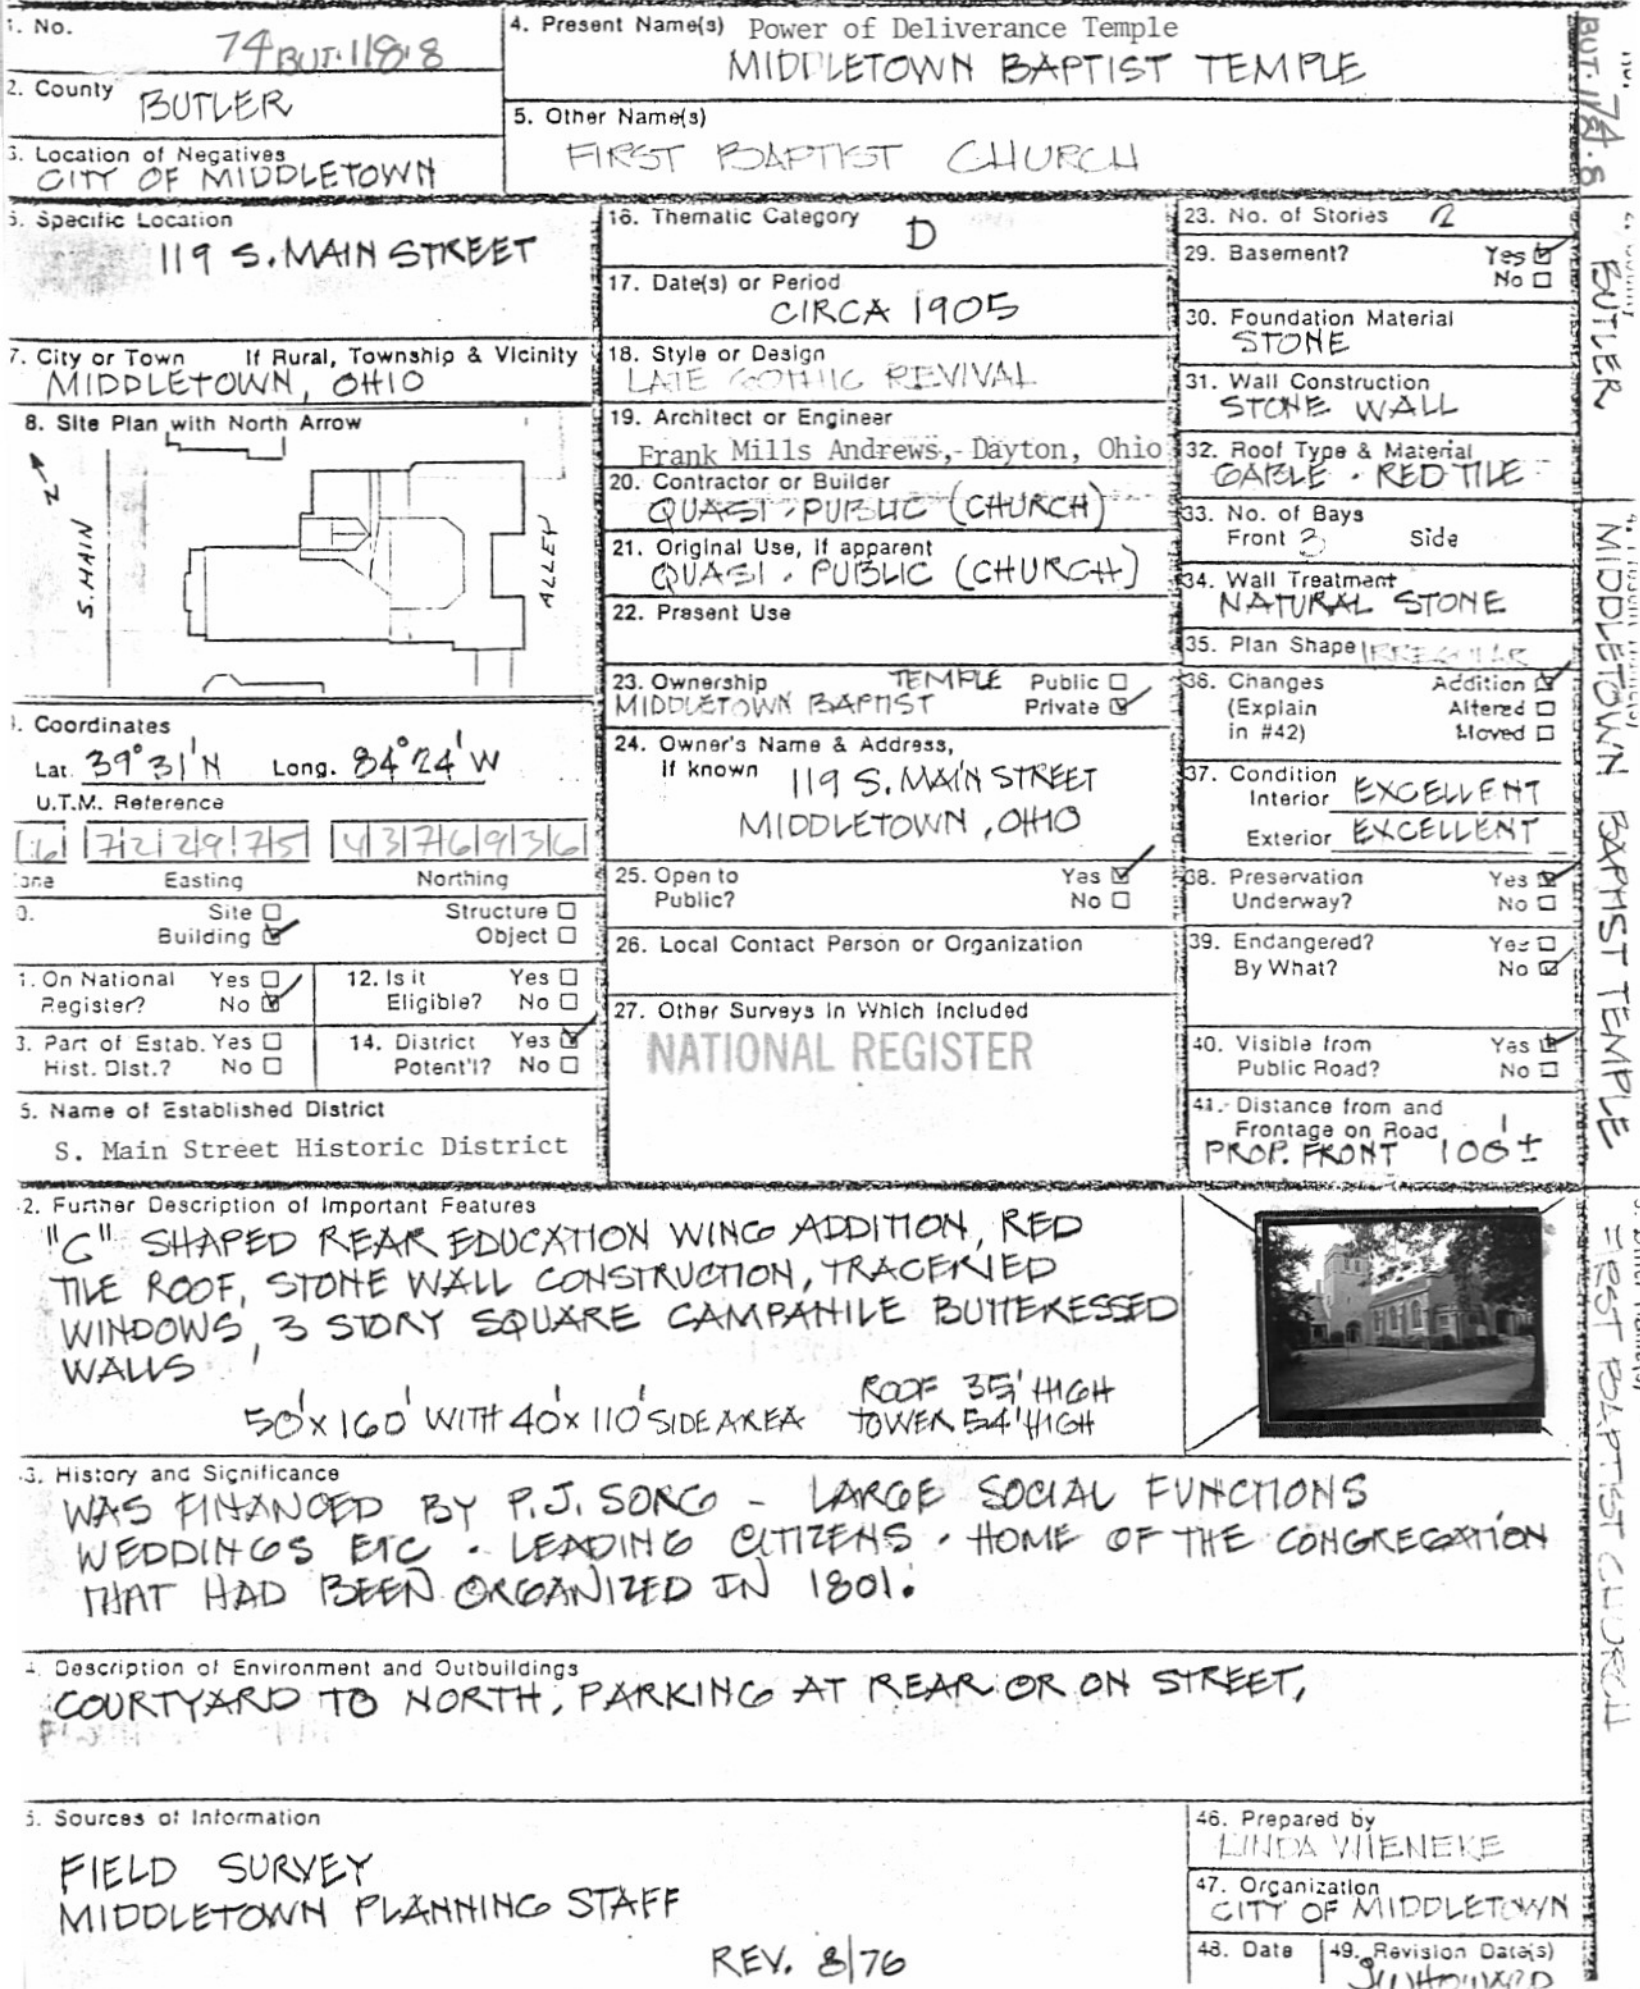 1. No.
74 BUT-118-8
2. County
BUTLER
3. Location of Negatives
CITY OF MIDDLETOWN
4. Present Name(s) Power of Deliverance Temple
MIDDLETOWN BAPTIST TEMPLE
5. Other Name(s)
FIRST BAPTIST CHURCH
6. Specific Location
119 S. MAIN STREET
7. City or Town If Rural, Township & Vicinity
MIDDLETOWN, OHIO
8. Site Plan with North Arrow
N
S. MAIN
ALLEY
9. Coordinates
Lat. 39°31'N Long. 84°24'W
U.T.M. Reference
16 722975 4376936
Zone Easting Northing
10. Site ☐ Structure ☐
Building ☑ Object ☐
11. On National Yes ☐
Register? No ☑
12. Is it Yes ☐
Eligible? No ☐
13. Part of Estab. Yes ☐
Hist. Dist.? No ☐
14. District Yes ☑
Potent'l? No ☐
15. Name of Established District
S. Main Street Historic District
16. Thematic Category D
17. Date(s) or Period
CIRCA 1905
18. Style or Design
LATE GOTHIC REVIVAL
19. Architect or Engineer
Frank Mills Andrews, Dayton, Ohio
20. Contractor or Builder
QUASI-PUBLIC (CHURCH)
21. Original Use, If apparent
QUASI-PUBLIC (CHURCH)
22. Present Use
23. Ownership TEMPLE Public ☐
MIDDLETOWN BAPTIST Private ☑
24. Owner's Name & Address,
if known 119 S. MAIN STREET
MIDDLETOWN, OHIO
25. Open to Yes ☑
Public? No ☐
26. Local Contact Person or Organization
27. Other Surveys in Which Included
NATIONAL REGISTER
23. No. of Stories 2
29. Basement? Yes ☑
No ☐
30. Foundation Material
STONE
31. Wall Construction
STONE WALL
32. Roof Type & Material
GABLE - RED TILE
33. No. of Bays
Front 3 Side
34. Wall Treatment
NATURAL STONE
35. Plan Shape IRREGULAR
36. Changes Addition ☑
(Explain Altered ☐
in #42) Moved ☐
37. Condition
Interior EXCELLENT
Exterior EXCELLENT
38. Preservation Yes ☑
Underway? No ☐
39. Endangered? Yes ☐
By What? No ☑
40. Visible from Yes ☑
Public Road? No ☐
41. Distance from and
Frontage on Road
PROP. FRONT 106'±
42. Further Description of Important Features
"C" SHAPED REAR EDUCATION WING ADDITION, RED
TILE ROOF, STONE WALL CONSTRUCTION, TRACERIED
WINDOWS, 3 STORY SQUARE CAMPANILE BUTTERESSED
WALLS
50' x 160' WITH 40' x 110' SIDE AREA
ROOF 35' HIGH
TOWER 54' HIGH
43. History and Significance
WAS FINANCED BY P.J. SORG - LARGE SOCIAL FUNCTIONS
WEDDINGS ETC. LEADING CITIZENS. HOME OF THE CONGREGATION
THAT HAD BEEN ORGANIZED IN 1801.
44. Description of Environment and Outbuildings
COURTYARD TO NORTH, PARKING AT REAR OR ON STREET,
45. Sources of Information
FIELD SURVEY
MIDDLETOWN PLANNING STAFF
REV. 8/76
46. Prepared by
LINDA WIENEKE
47. Organization
CITY OF MIDDLETOWN
48. Date
49. Revision Date(s)
BUT-118-8
74
BUTLER
MIDDLETOWN BAPTIST TEMPLE
FIRST BAPTIST CHURCH